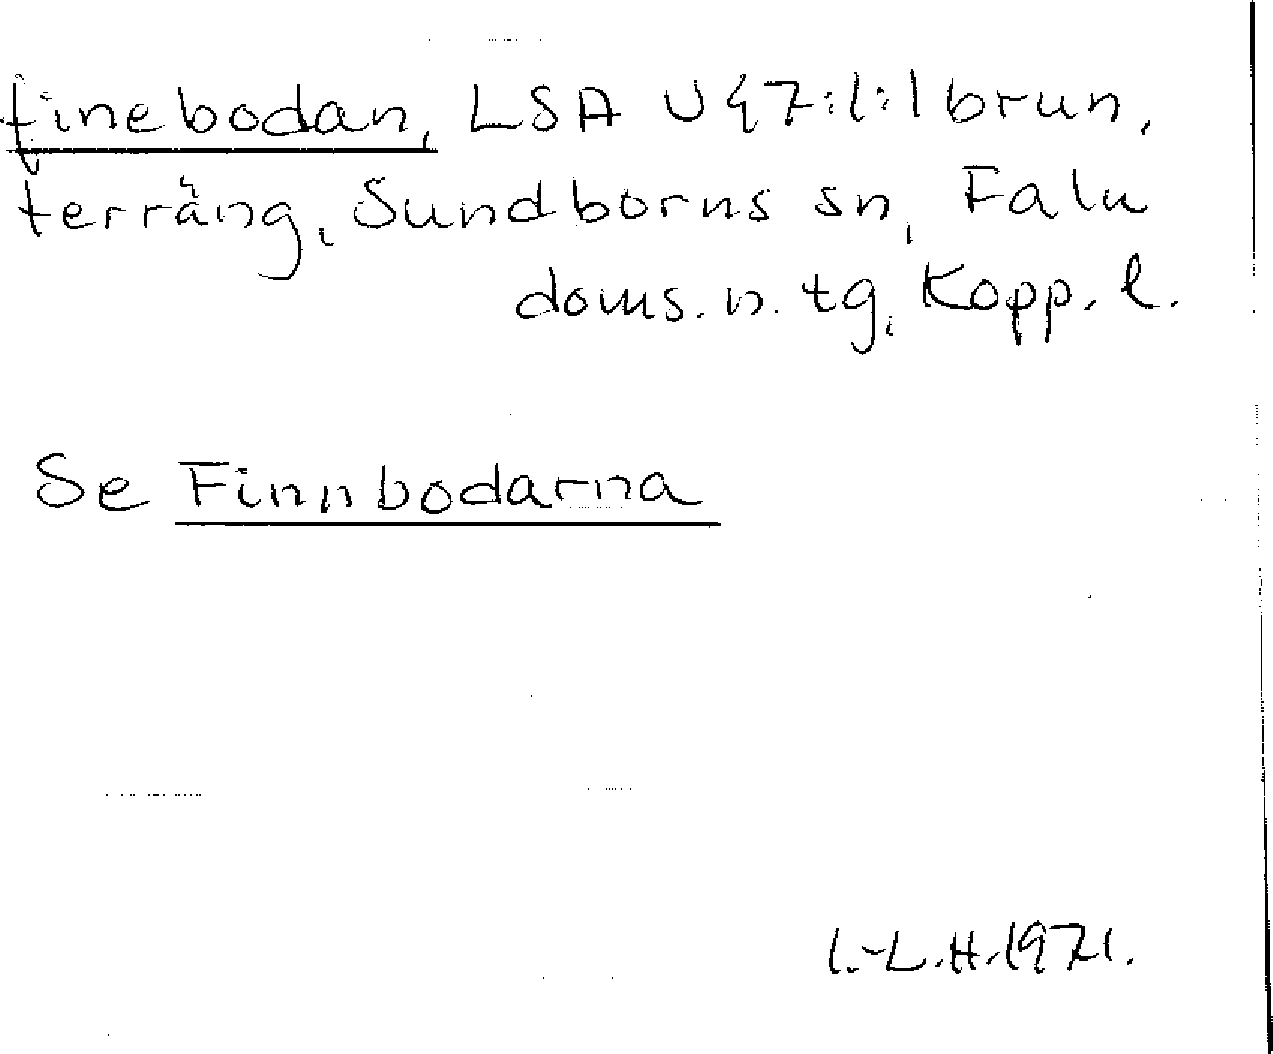 finebodan, LSA U47:1:1 brun,
terräng, Sundborns sn, Falu
doms. n. tg, Kopp. l.
Se Finnbodarna
I.-L.H.1971.